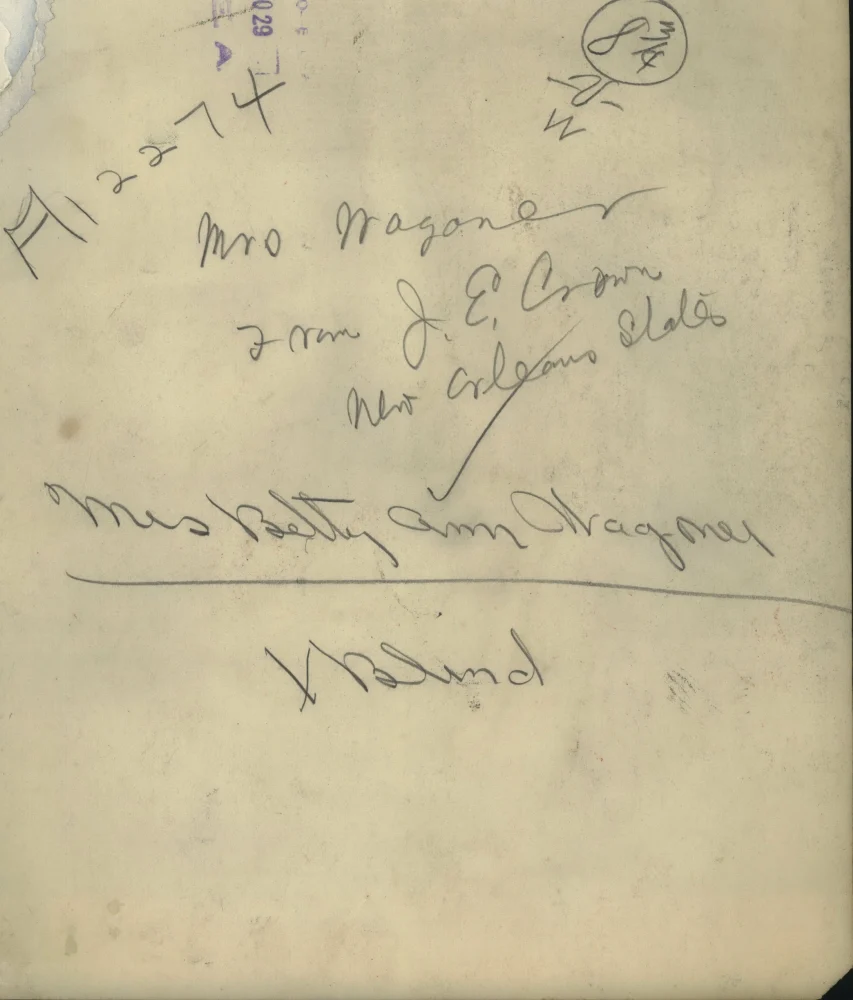 29
E A
8 3/4
W
A12274
Mrs Wagoner
From J. E. Crown
New Orleans States
Mrs Betty Ann Wagoner
X Blind